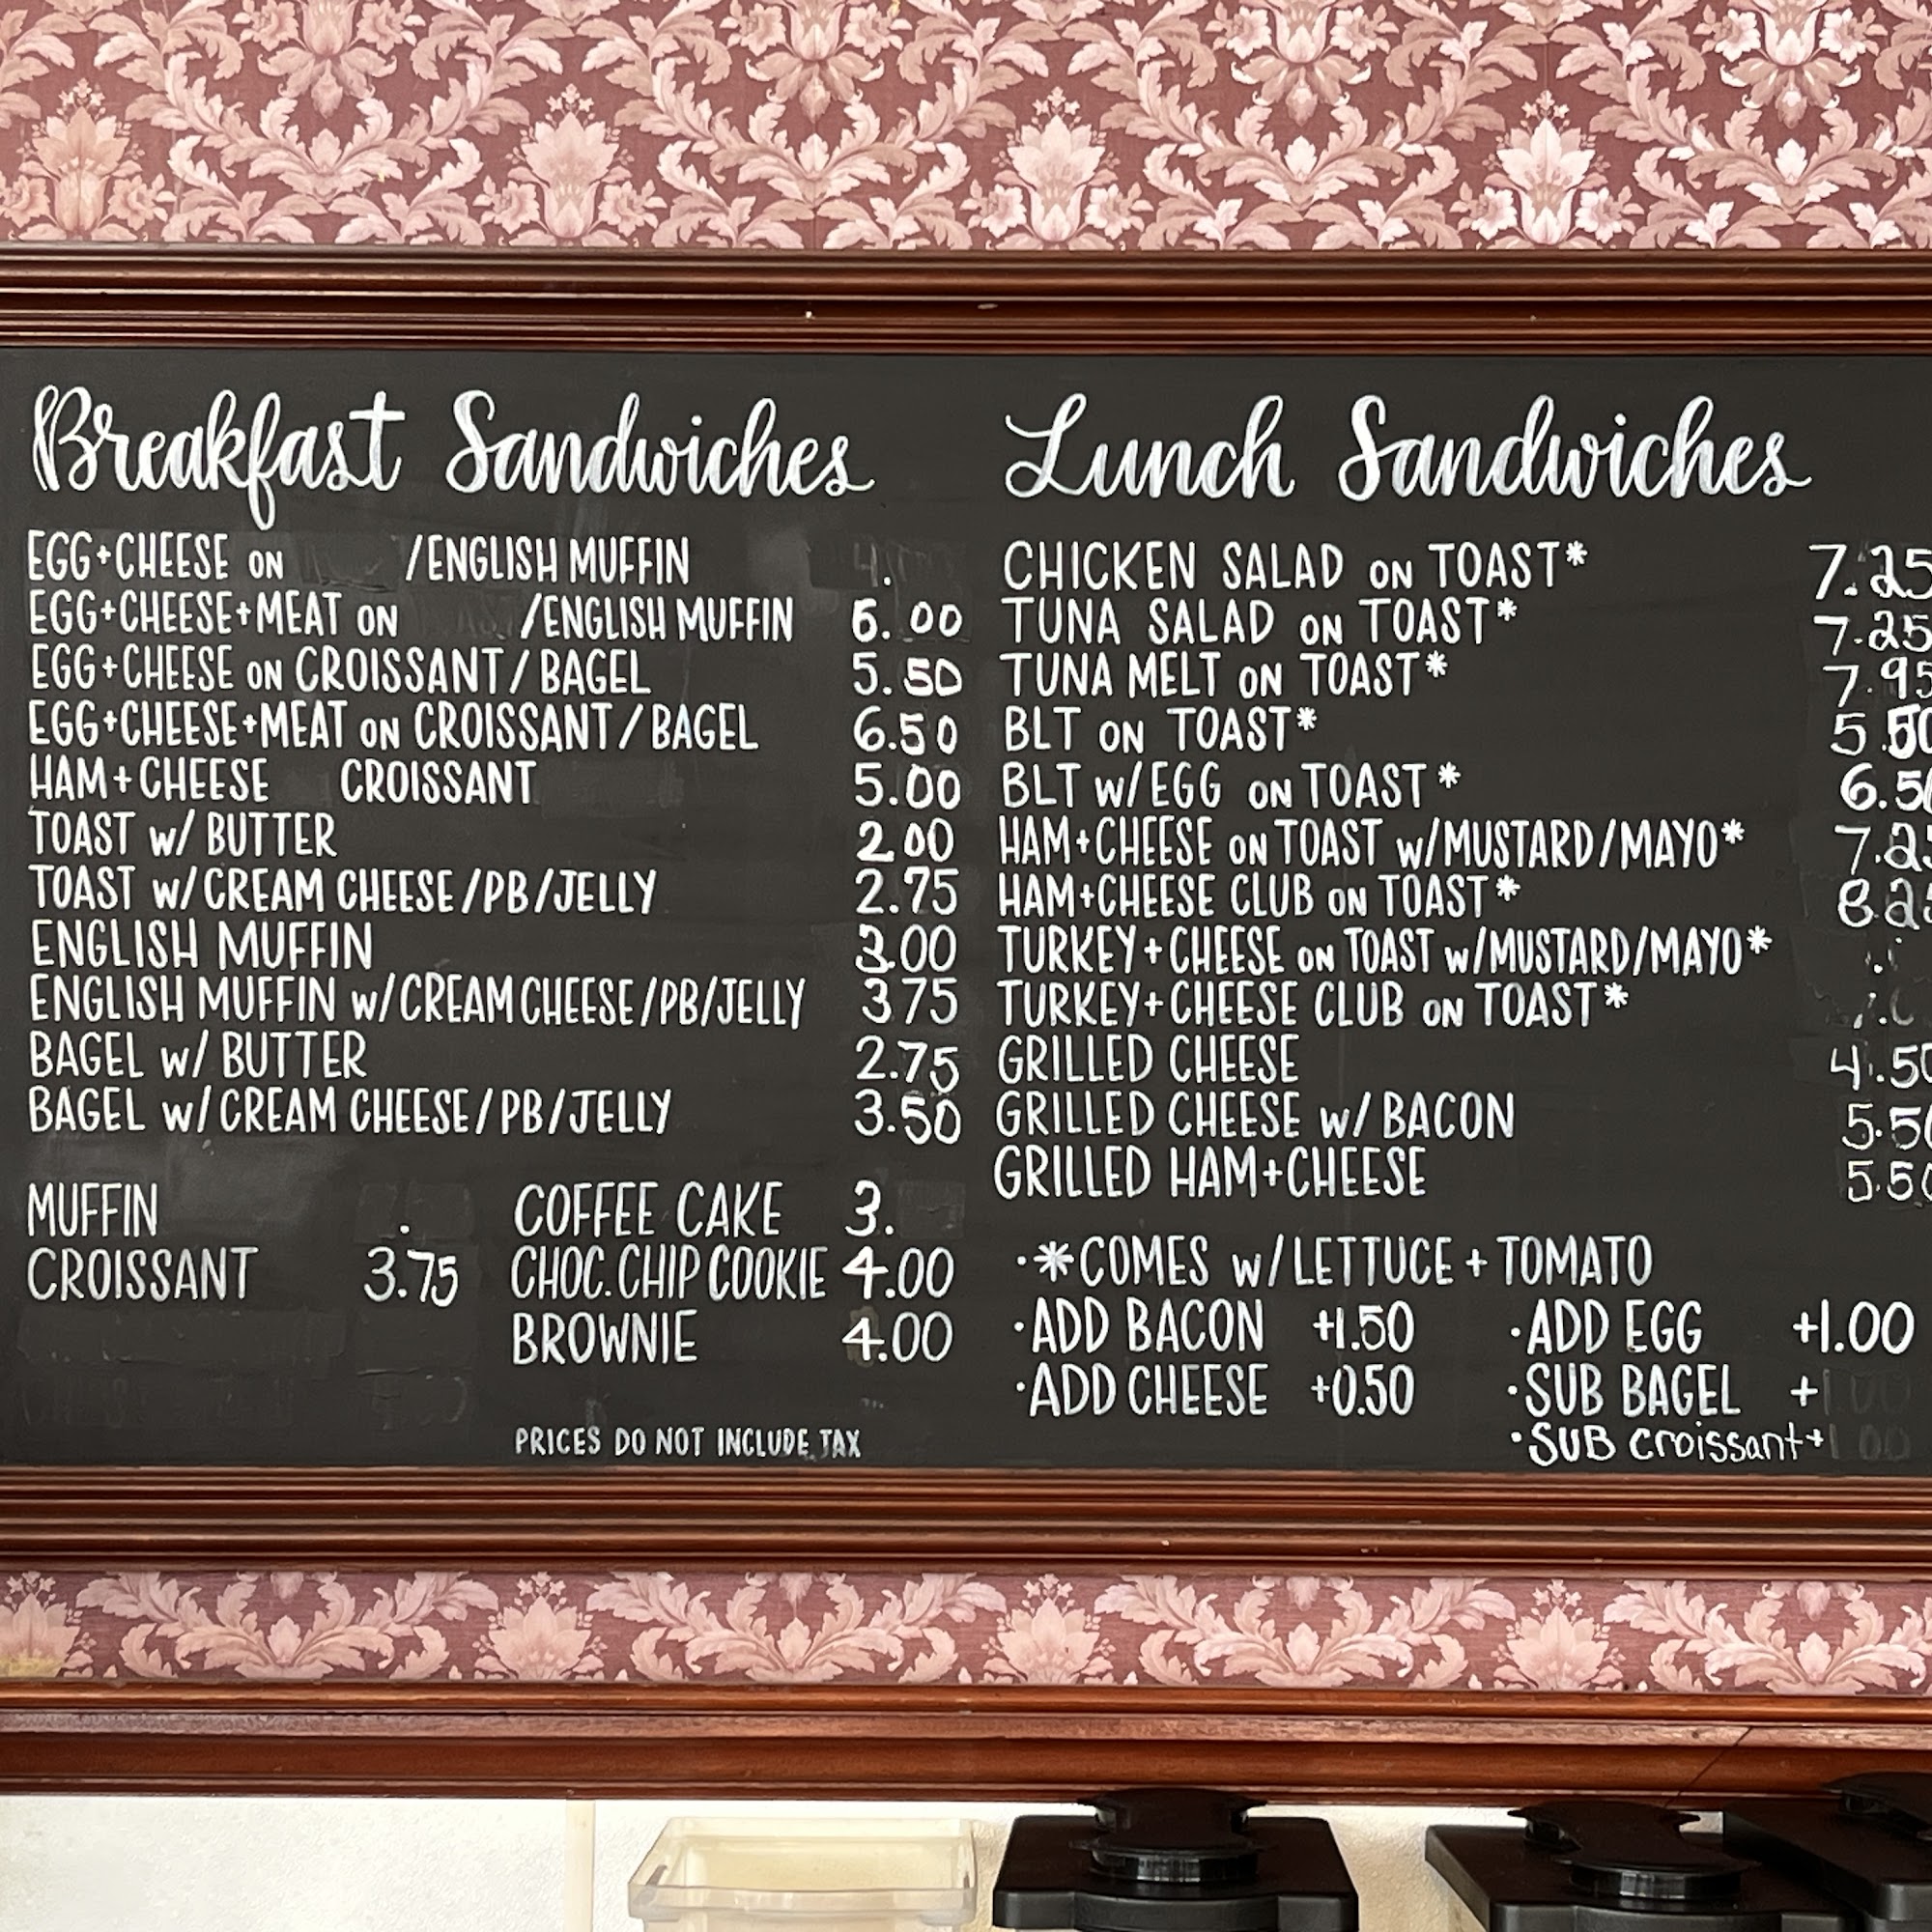 Breakfast Sandwiches
EGG+CHEESE ON /ENGLISH MUFFIN
EGG+CHEESE+MEAT ON /ENGLISH MUFFIN 6.00
EGG+CHEESE ON CROISSANT/BAGEL 5.50
EGG+CHEESE+MEAT ON CROISSANT/BAGEL 6.50
HAM+CHEESE CROISSANT 5.00
TOAST w/ BUTTER 2.00
TOAST w/CREAM CHEESE/PB/JELLY 2.75
ENGLISH MUFFIN 3.00
ENGLISH MUFFIN w/CREAM CHEESE/PB/JELLY 3.75
BAGEL w/ BUTTER 2.75
BAGEL w/CREAM CHEESE/PB/JELLY 3.50
MUFFIN
CROISSANT 3.75
COFFEE CAKE 3.
CHOC. CHIP COOKIE 4.00
BROWNIE 4.00
PRICES DO NOT INCLUDE TAX
Lunch Sandwiches
CHICKEN SALAD ON TOAST* 7.25
TUNA SALAD ON TOAST* 7.25
TUNA MELT ON TOAST* 7.95
BLT ON TOAST* 5.50
BLT w/EGG ON TOAST* 6.50
HAM+CHEESE ON TOAST w/MUSTARD/MAYO* 7.25
HAM+CHEESE CLUB ON TOAST* 8.25
TURKEY+CHEESE ON TOAST w/MUSTARD/MAYO*
TURKEY+CHEESE CLUB ON TOAST*
GRILLED CHEESE 4.50
GRILLED CHEESE w/ BACON 5.50
GRILLED HAM+CHEESE 5.50
·*COMES w/LETTUCE + TOMATO
·ADD BACON +1.50 ·ADD EGG +1.00
·ADD CHEESE +0.50 ·SUB BAGEL +1.00
·SUB Croissant +1.00